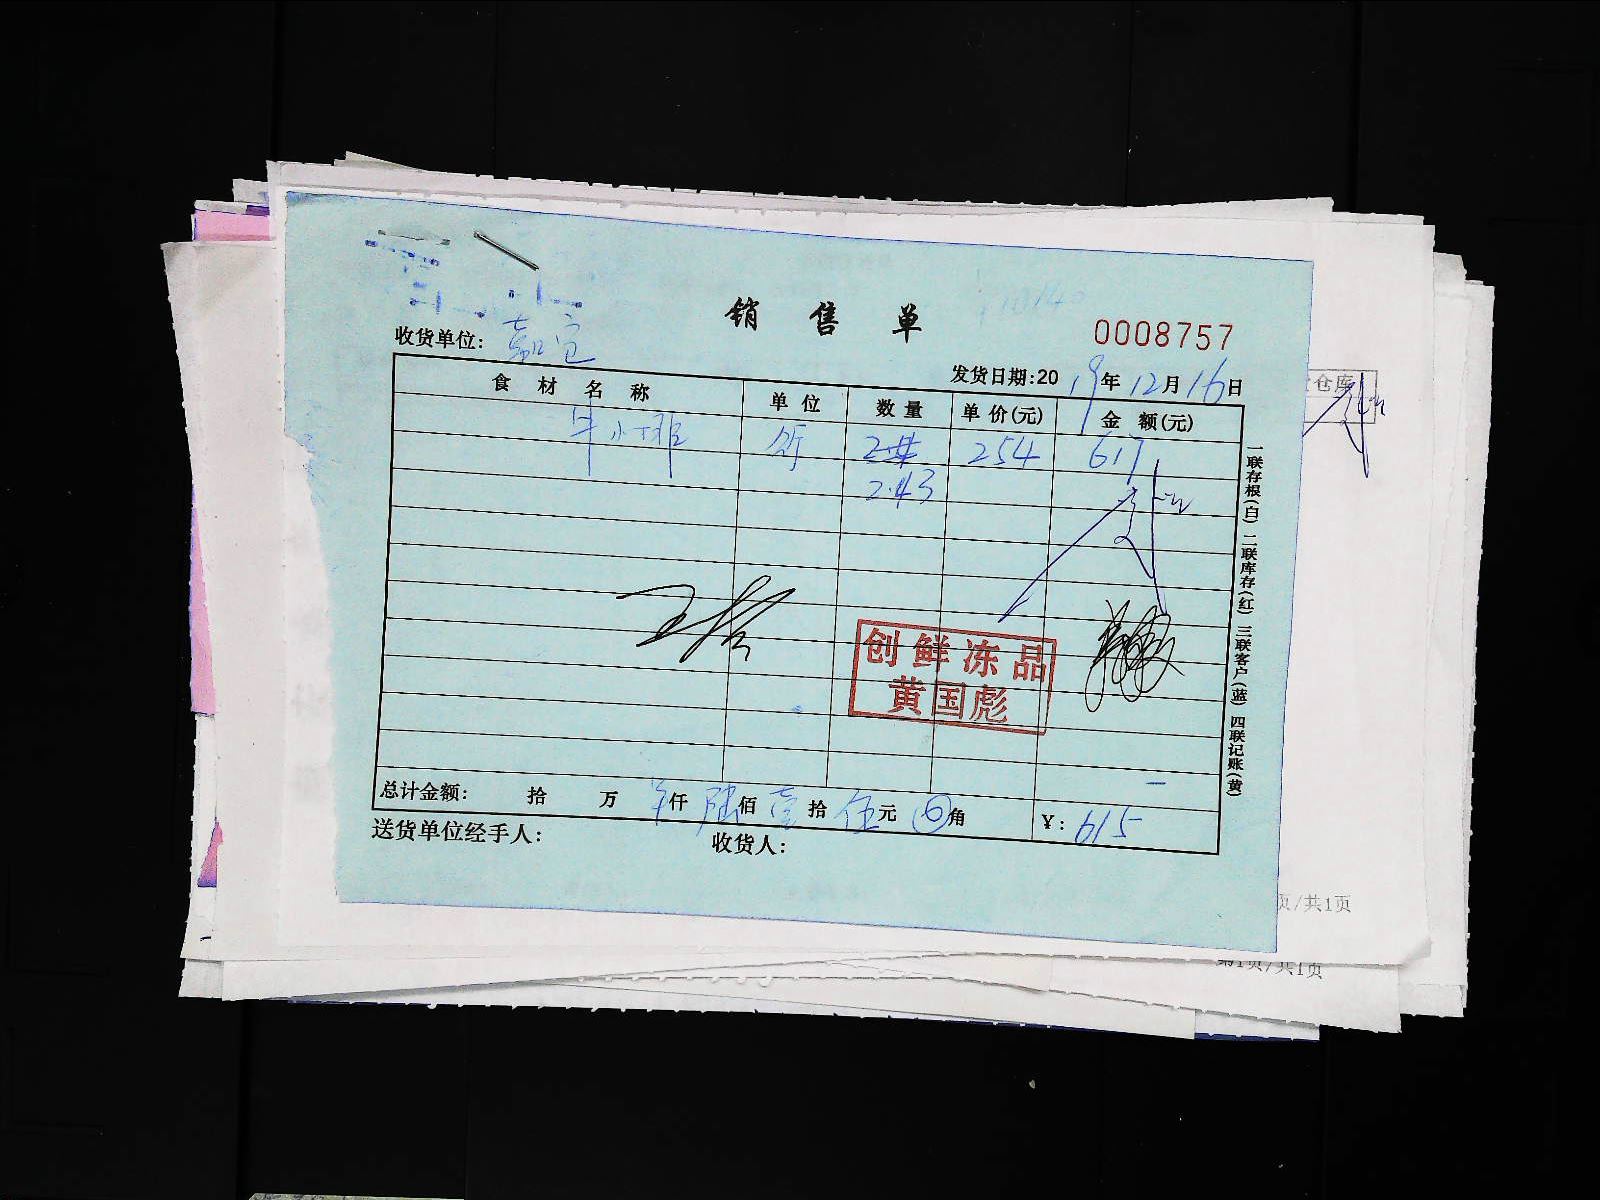 销售单
0008757
收货单位: 嘉宜
发货日期:2019年12月16日
仓库
食材名称 单位 数量 单价(元) 金额(元)
牛小排 斤 254 617
2.43
创鲜冻品
黄国彪
一联存根(白) 二联库存(红) 三联客户(蓝) 四联记账(黄)
总计金额: 拾 万 仟 陆佰 壹拾 伍元 角 ¥: 615
送货单位经手人: 收货人:
页/共1页
第1页/共1页